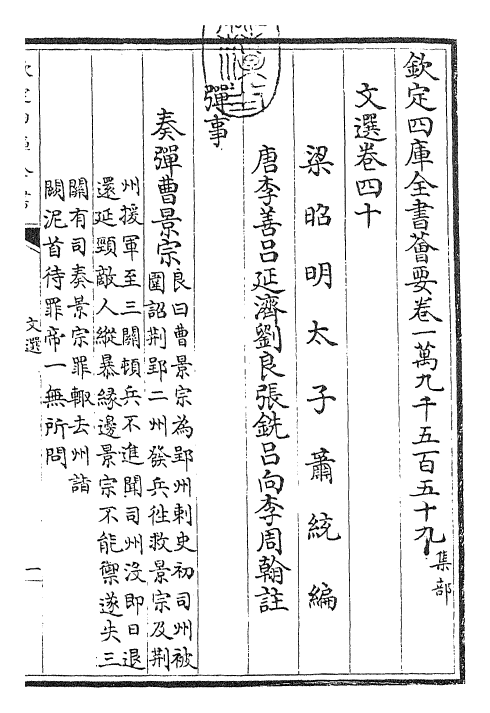 欽定四庫全書薈要卷一萬九千五百五十九集部
文選卷四十
梁昭明太子蕭統編
唐李善呂延濟劉良張銑呂向李周翰註
彈事
奏彈曹景宗
良曰曹景宗為郢州刺史初司州被
圍詔荆郢二州發兵徃救景宗及荆
州援軍至三關頓兵不進聞司州沒即日退
還延頸敵人縱暴緣邊景宗不能禦遂失三
關有司奏景宗罪輙去州詣
闕泥首待罪帝一無所問
文選
一